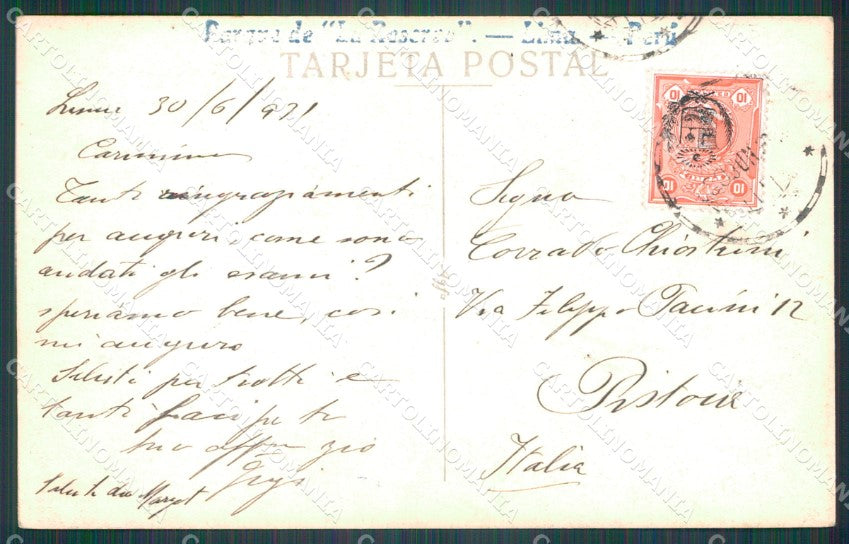 Parque de "La Reserva". — Lima. — Perú
TARJETA POSTAL
Lima 30/6/931
Carissimo
Tanti ringraziamenti
per auguri, come sono
andati gli esami?
speriamo bene, cosi
mi auguro
Saluti per tutti e
tanti baci per te
tuo affmo zio
Gigi
Saluti da Margot
Signor
Corrado Chiostrini
Via Filippo Pacini 12
Pistoia
Italia
10
10
10
10
CARTOLINOMANIA